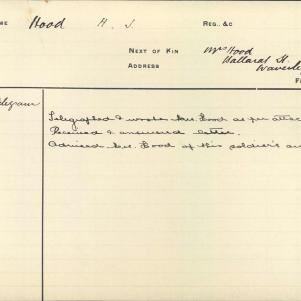 ME Hood H. J. REG., &C
NEXT OF KIN Mrs Hood
ADDRESS Ballarat St.
Waverle
F
legram
Telegraphed & wrote Mrs. Hood as per attac
Received & answered letter.
Advised Mrs. Hood of this soldier's au